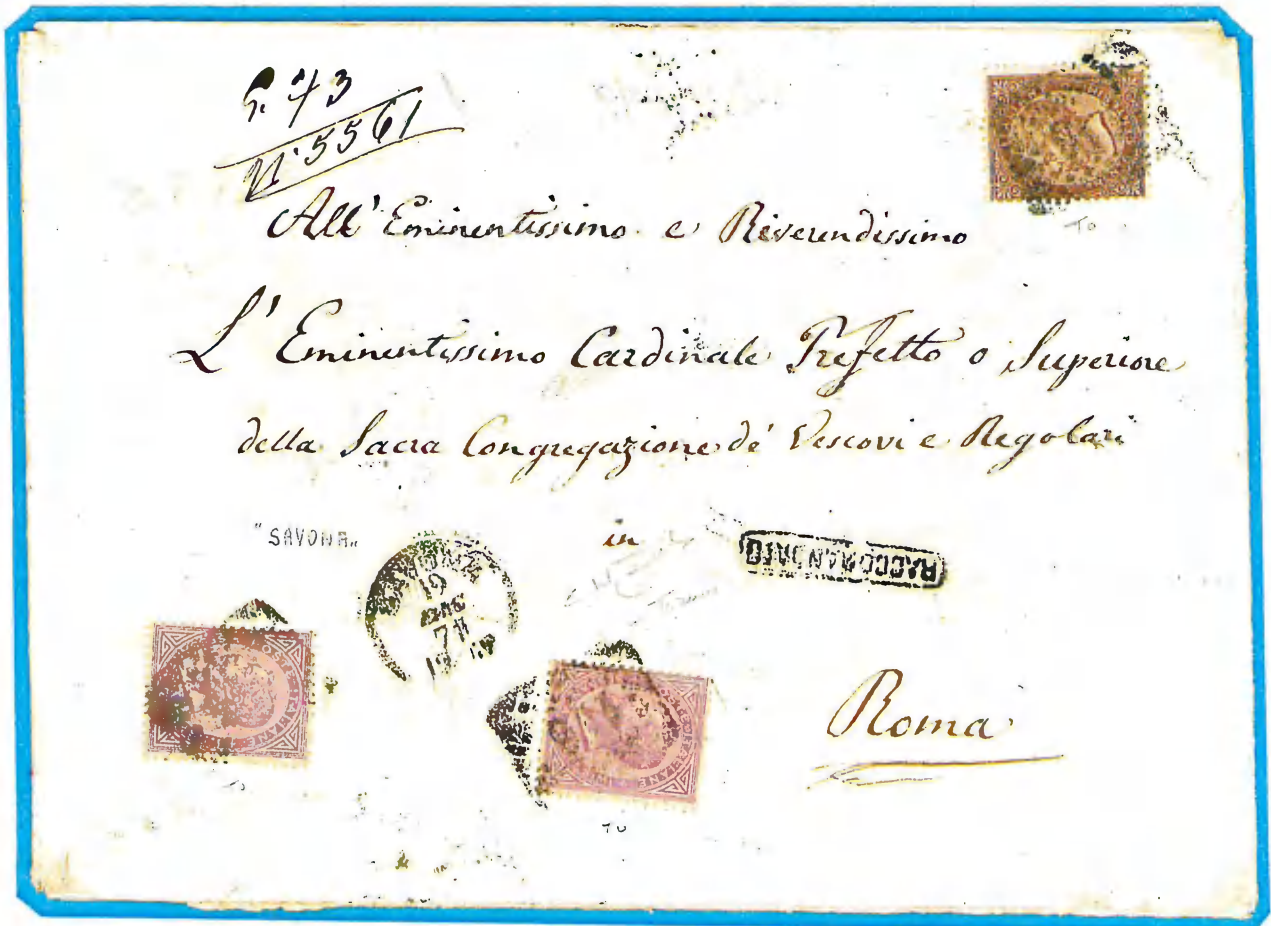 G. 73
N. 5561
All' Eminentissimo e Reverendissimo
L' Eminentissimo Cardinale Prefetto o Superiore
della Sacra Congregazione de' Vescovi e Regolari
in
"SAVONA"
SAVONA
19
74
RACCOMANDATO
POSTE ITALIANE
Roma
TO
TO